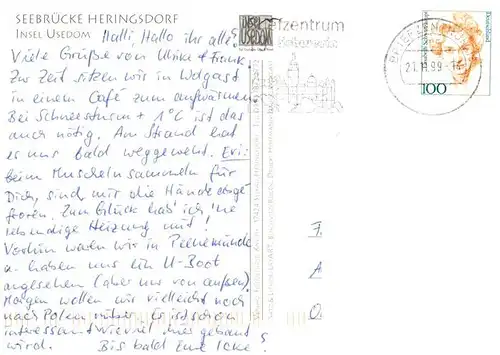 SEEBRÜCKE HERINGSDORF
INSEL USEDOM
Halli, Hallo ihr alle!
Viele Grüße von Ulrike + Frank.
Zur Zeit sitzen wir in Wolgast
in einem Café zum aufwärmen.
Bei Schneesturm + 1°C ist das
auch nötig. Am Strand hat
es uns bald weggeweht. Evi:
beim Muscheln sammeln für
Dich, sind mir die Hände abge
froren. Zum Glück hab' ich 'ne
lebendige Heizung mit!
Vorhin waren wir in Peenemünde
u. haben uns ein U-Boot
angesehen (aber nur von außen).
Morgen wollen wir vielleicht noch
nach Polen rüber. Es ist schon
interessant wieviel hier gebaut
wird. Bis bald Eure Icke!
INSEL
USEDOM
fzentrum
21.11.99
100
Deutschland
F
A
O